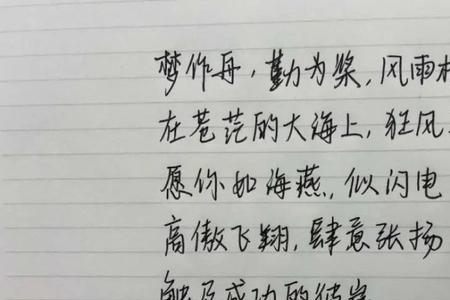 梦作舟，勤为桨，风雨
在苍茫的大海上，狂风
愿你如海燕，似闪电
高傲飞翔，肆意张扬
触及成功的彼岸